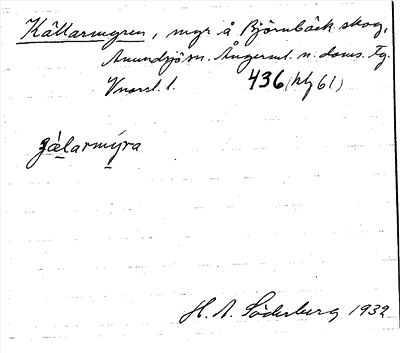 Källarmyren, myr å Björnbäck skog,
Anundsjö sn. Ångerml. n. doms. Tg.
Vnorrl. l. 436 (bl 61)
gálarmýra
H. A. Söderberg 1932